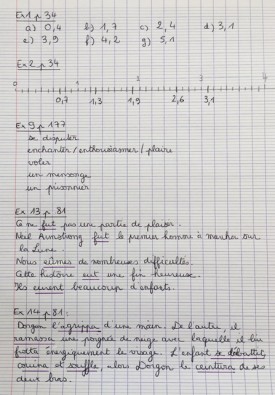 Ex 1 p 34
a) 0,4 b) 1,7 c) 2,4 d) 3,1
e) 3,9 f) 4,2 g) 5,1
Ex 2 p 34
0 1 3 4
0,7 1,3 1,9 2,6 3,1
Ex 9 p 177
se disputer
enchanter / enthousiasmer / plaire
voler
un mensonge
un prisonnier
Ex 13 p 81
Ce ne fut pas une partie de plaisir.
Neil Armstrong fut le premier homme à marcher sur
la Lune.
Nous eûmes de nombreuses difficultés.
Cette histoire eut une fin heureuse.
Ils eurent beaucoup d'enfants.
Ex 14 p 81.
Dorgon l'agrippa d'une main. De l'autre, il
ramassa une poignée de neige avec laquelle il lui
frotta énergiquement le visage. L'enfant se débattait,
et souffla, alors Dorgon le ceintura de ses
deux bras.